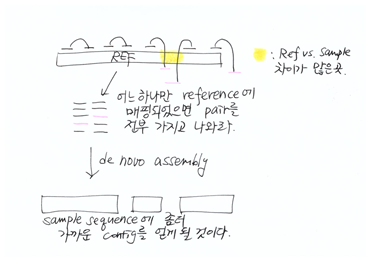 REF
: Ref vs. sample
차이가 많은곳.
어느하나만 reference에
매핑되었으면 pair를
전부 가지고 나와라.
de novo assembly
sample sequence에 좀더
가까운 contig를 얻게 될 것이다.